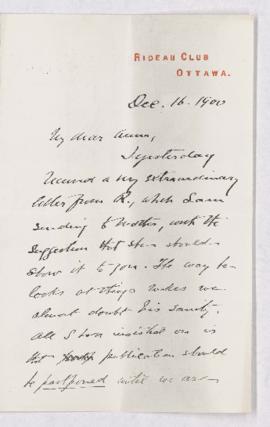 RIDEAU CLUB
OTTAWA.
Dec. 16. 1900
My dear Anna,
I yesterday
received a very extraordinary
letter from R., which I am
sending to Mother, with the
suggestion that she should
show it to you. The way he
looks at things makes me
almost doubt his sanity.
All I have insisted on is
that publication should
be postponed until we are